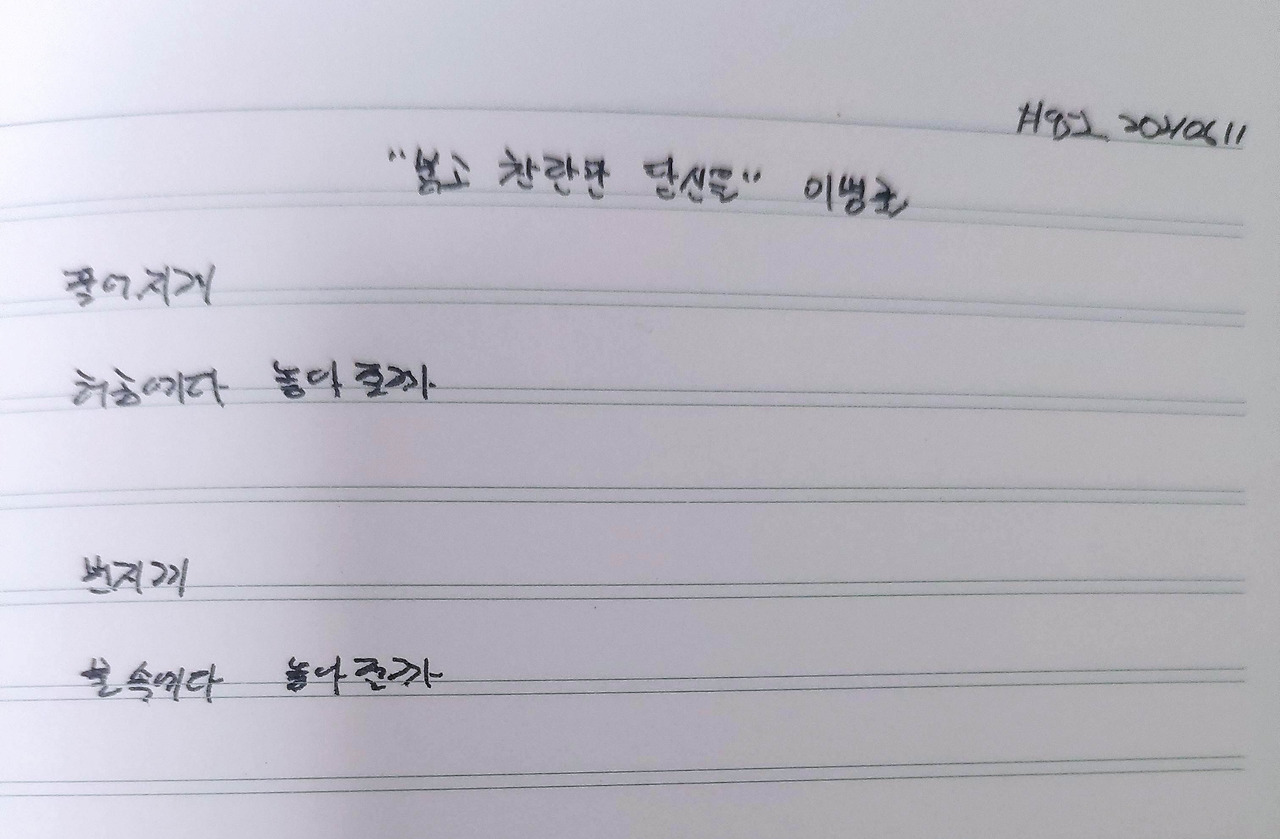 #952 20210611
"붉고 찬란한 당신을" 이병률
풀어지게
허공에다 놓아줄까
번지게
물 속에다 놓아줄까